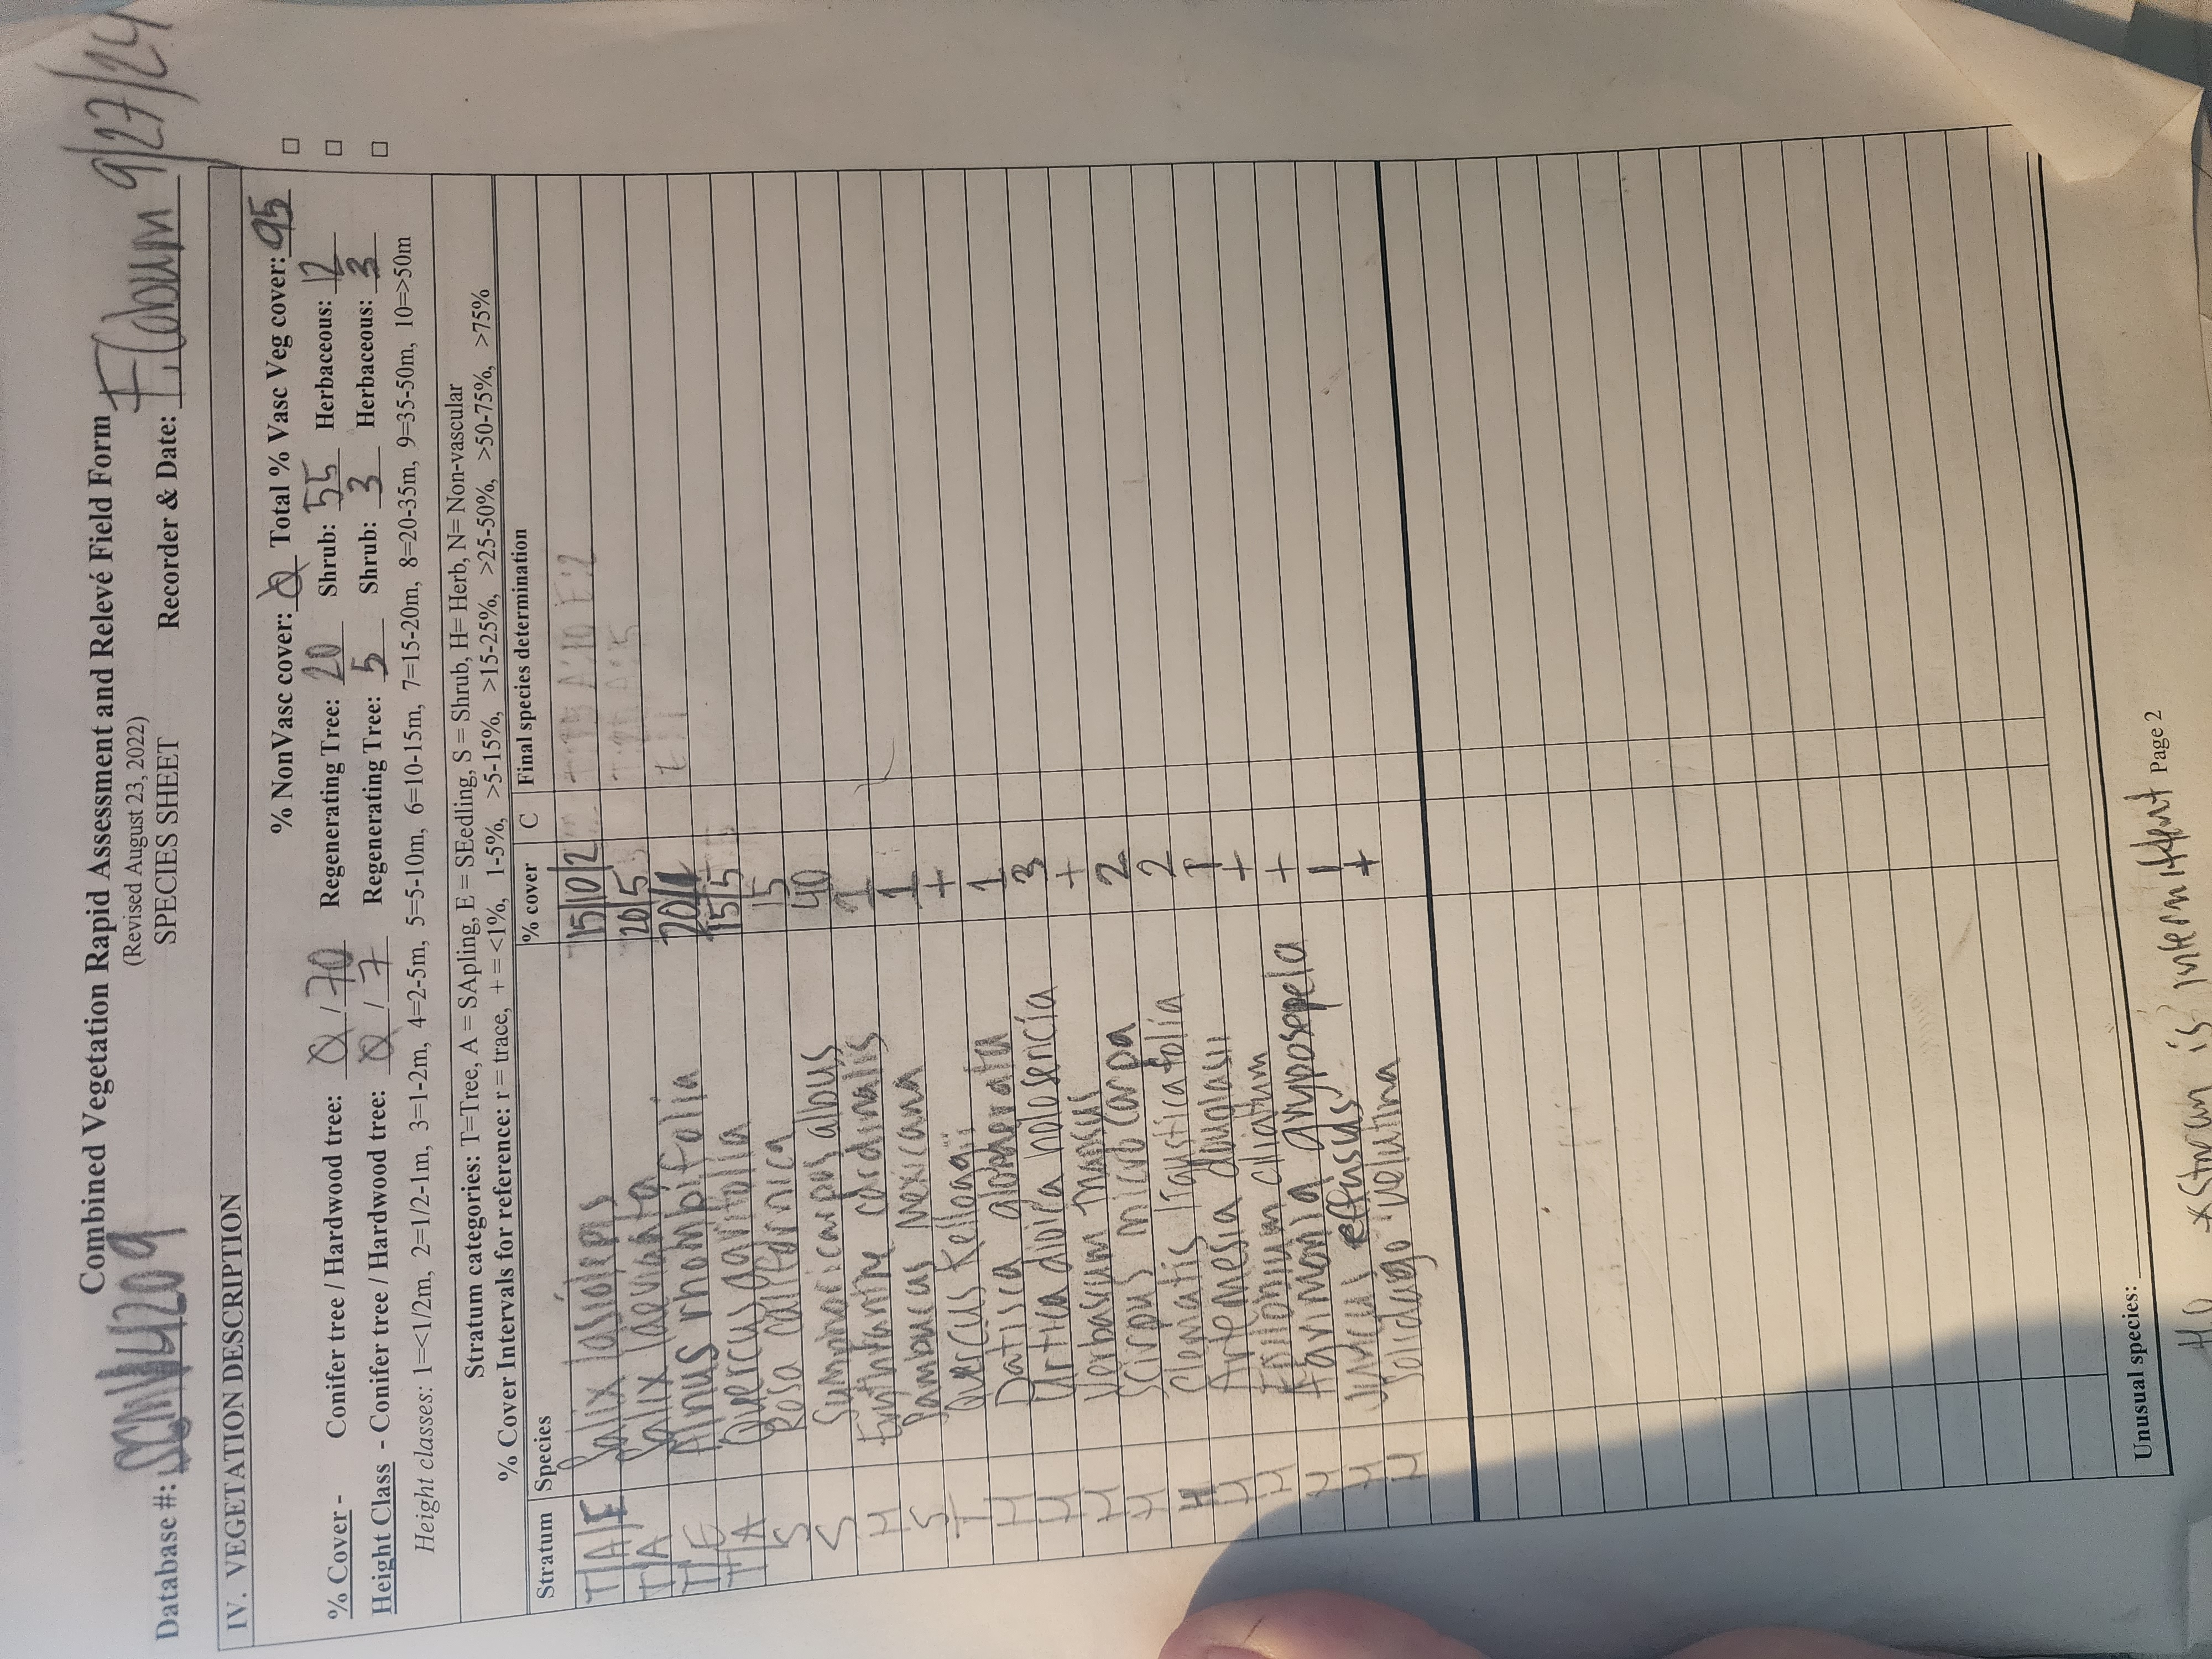 Combined Vegetation Rapid Assessment and Relevé Field Form
(Revised August 23, 2022)
Database #: SCMU4209 SPECIES SHEET Recorder & Date: 9/27/24
IV. VEGETATION DESCRIPTION
% NonVasc cover: 0 Total % Vasc Veg cover: 95
% Cover - Conifer tree / Hardwood tree: 0 / 70 Regenerating Tree: 20 Shrub: 55 Herbaceous: 12 □
Height Class - Conifer tree / Hardwood tree: 0 / 7 Regenerating Tree: 5 Shrub: 3 Herbaceous: 3 □
Height classes: 1=<1/2m, 2=1/2-1m, 3=1-2m, 4=2-5m, 5=5-10m, 6=10-15m, 7=15-20m, 8=20-35m, 9=35-50m, 10=>50m
Stratum categories: T=Tree, A = SApling, E = SEedling, S = Shrub, H= Herb, N= Non-vascular
% Cover Intervals for reference: r = trace, + = <1%, 1-5%, >5-15%, >15-25%, >25-50%, >50-75%, >75%
Stratum Species % cover C Final species determination
T/A/E Salix lasiolepis 15/10/2
T/A Salix laevigata 20/5
T/E Alnus rhombifolia 20/1
T/A Quercus garritollia 15/5
S Rosa californica 15
S Symphoricarpos albus 40
H Euthatnthe cardinalis 1
S Sambucas mexicana 1
T Quercus Kelloggii +
H Datisca glomherata 1
H Urtica dioica holosencia 3
H Verbascum thapsus +
H Scirpus microcarpa 2
H Clematis ligusticafolia 2
H Artemesia douglasii 1
H Epilobium ciliatum +
H Agrimonia gryposepela +
H Juncus effusus 1
H Solidago velutina +
Unusual species:
Page 2
*Stream is intermittent